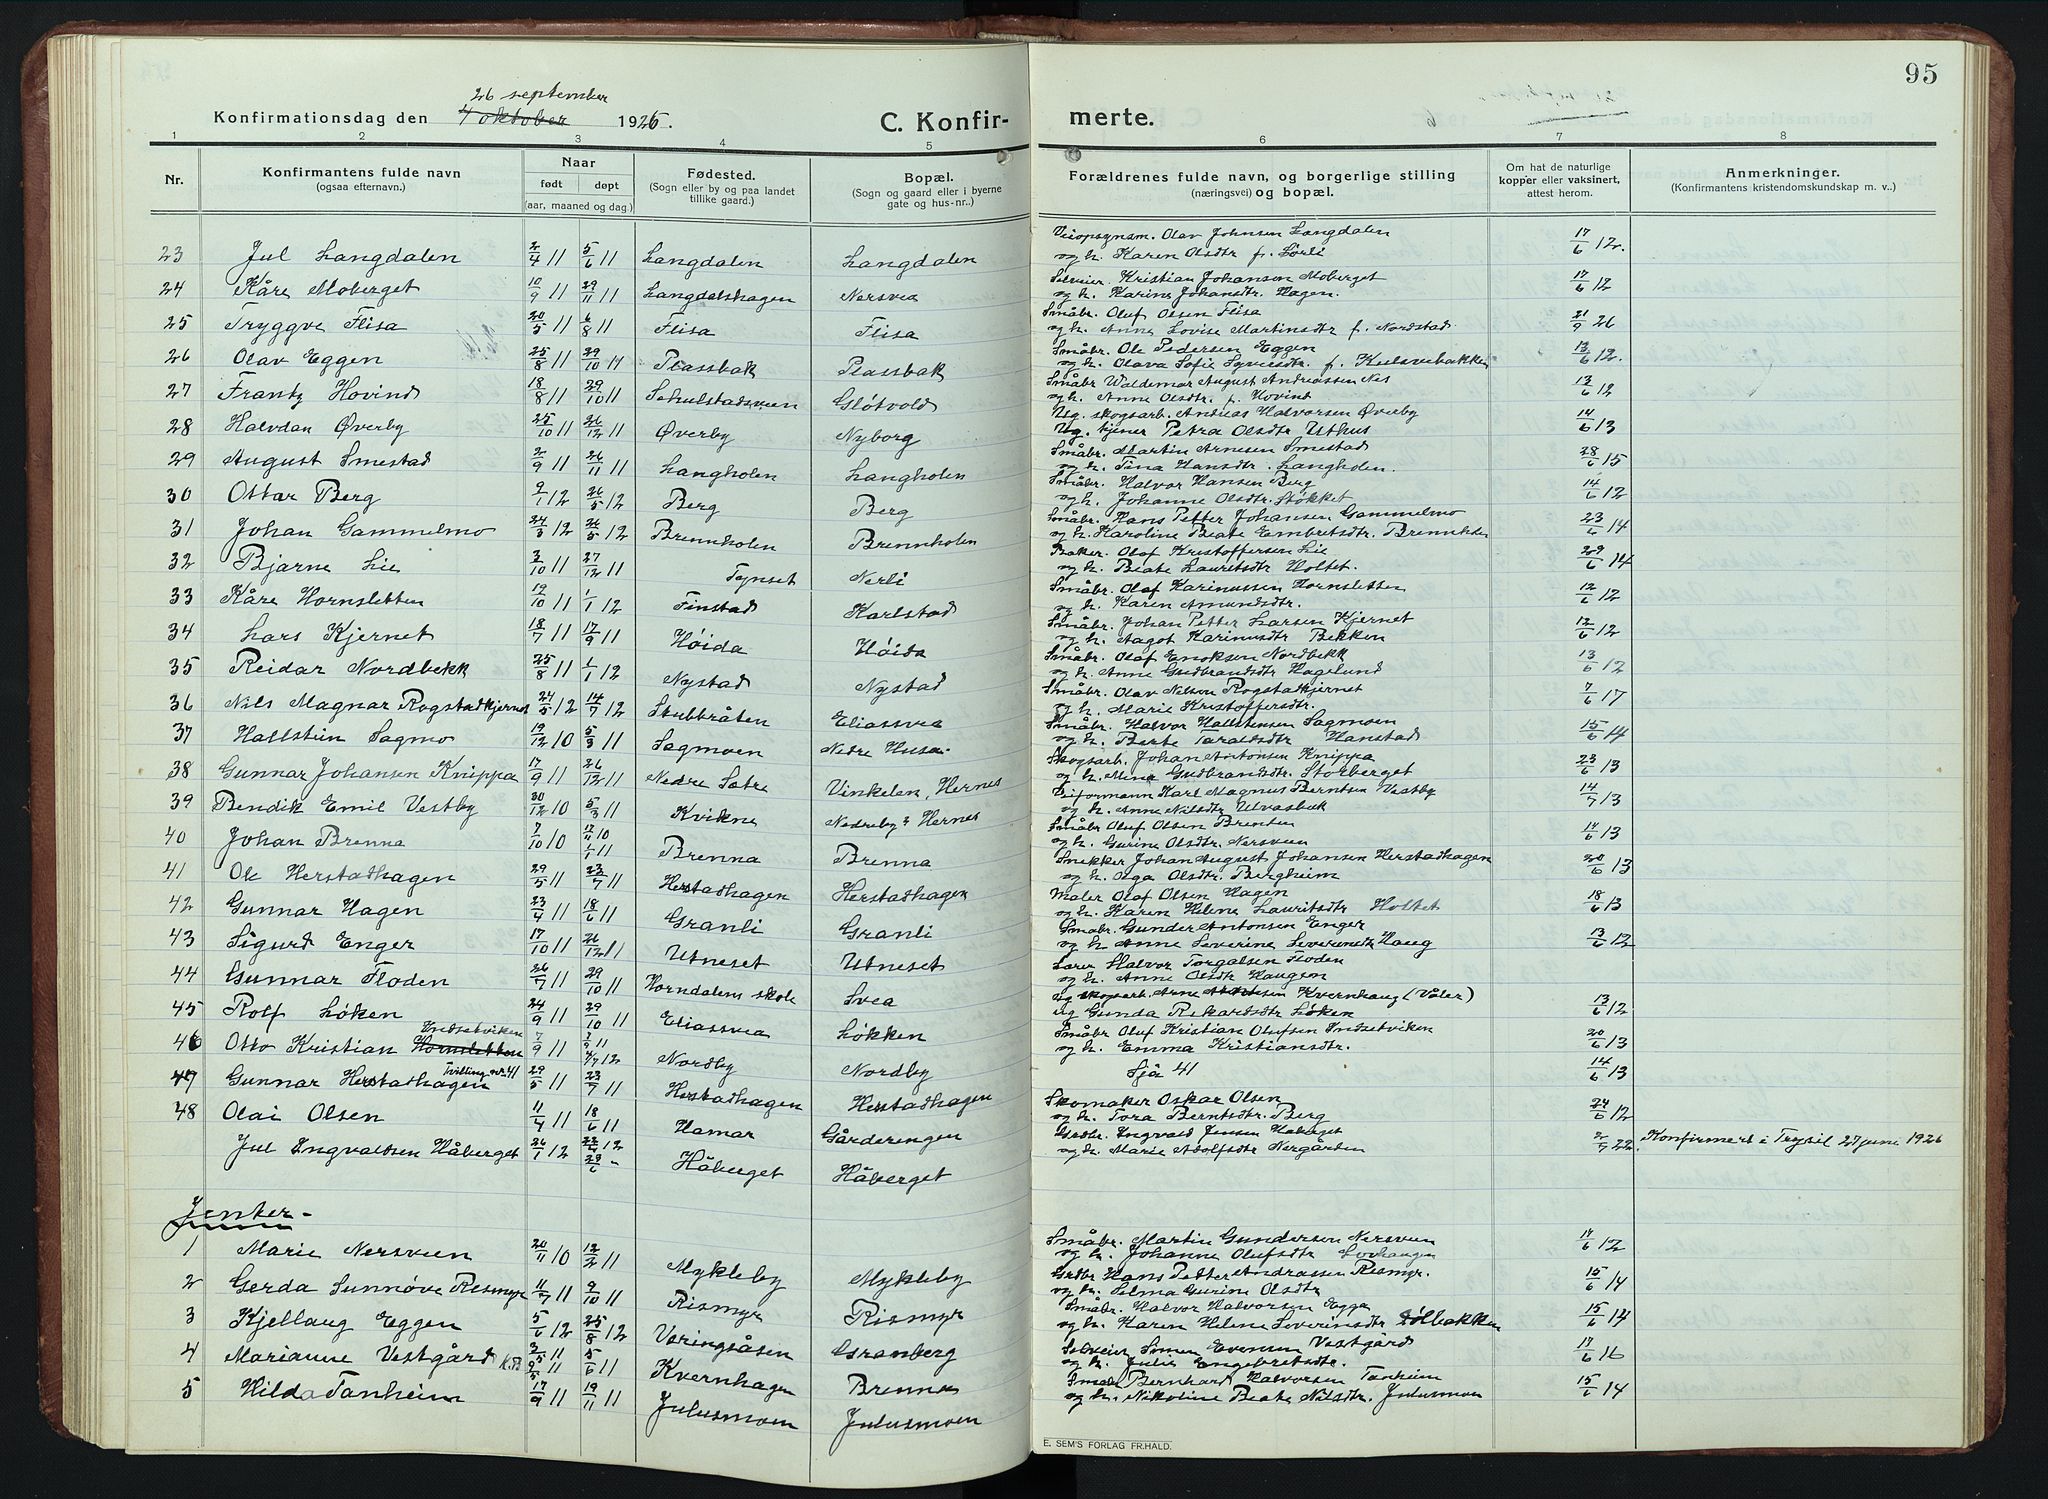 95
26 september
Konfirmationsdag den 4 oktober 1926.
C. Konfirmerte.
1 2 3 4 5 6 7 8
Nr. Konfirmantens fulde navn (ogsaa efternavn.) Naar født døpt (aar, maaned og dag.) Fødested. (Sogn eller by og paa landet tillike gaard.) Bopæl. (Sogn og gaard eller i byerne gate og hus-nr..) Forældrenes fulde navn, og borgerlige stilling (næringsvei) og bopæl. Om hat de naturlige kopper eller vaksinert, attest herom. Anmerkninger. (Konfirmantens kristendomskundskap m. v..)
23 Jul Langdalen 2/4 11 5/6 11 Langdalen Langdalen Olav Johnsen Langdalen 17/6 12.
og h. Karen Olsdtr f. Sörli
24 Kåre Moberget 10/9 11 29/11 11 Langdalshagen Nersvea Selveier Kristian Johansen Moberget 17/6 12
og h. Karine Johansdtr. Hagen.
25 Tryggve Flisa 20/5 11 6/8 11 Flisa Flisa Småbr. Oluf Olsen Flisa 21/9 26
og h. Anne Lovise Martinsdtr f. Nordstad
26 Olav Eggen 25/8 11 29/10 11 Plassbak Plassbak Småbr. Ole Pedersen Eggen 13/6 12.
og h. Olava Sofie Syversdtr. f. Kulsvebakken
27 Frantz Hovind 18/8 11 29/10 11 Schulstadsveen Gløtvold Småbr Waldemar August Andreassen Nes 13/6 12
og h. Anne Olsdtr. f. Hovind
28 Halvdan Øverby 25/10 11 26/12 11 Øverby Nyborg Ug. skogsarb. Andreas Halvorsen Øverby 14/6 13
Ug. tjener Petra Olsdtr Uthus
29 August Smestad 2/9 11 26/11 11 Langholen Langholen Småbr. Martin Arnesen Smestad 28/6 15
og h. Tina Hansdtr. Langholen.
30 Ottar Berg 9/1 12 26/5 12 Berg Berg Småbr. Halvor Hansen Berg 14/6 12
og h. Johanne Olsdtr. Støkket
31 Johan Gammelmo 24/3 12 26/5 12 Brennholen Brennholen Småbr. Hans Petter Johansen Gammelmo 23/6 14
og h. Karoline Beate Embretsdtr. Brennholen
32 Bjarne Lie 3/10 11 27/12 11 Tynset Nerli Baker. Olaf Kristoffersen Lie 29/6 14
og h. Beate Lauritsdtr Holtet.
33 Kåre Hornsletten 19/10 11 1/1 12 Finstad Karlstad Småbr. Olaf Karinussen Hornsletten 12/6 12
og h. Karen Amundsdtr.
34 Lars Kjernet 18/7 11 17/9 11 Høida Høida Småbr. Johan Petter Larsen Kjernet 12/6 12
og h. Aagot Karinusdtr Bekken
35 Reidar Nordbekk 25/8 11 1/1 12 Nystad Nystad Småbr. Olaf Enoksen Nordbekk 13/6 12
og h. Anne Gudbrandsdtr Hagelund
36 Nils Magnar Rogstadkjernet 24/5 12 14/7 12 Stubbråten Eliassvea Småbr. Olav Nelsen Rogstadkjernet 7/6 17
og h. Marie Kristoffersdtr.
37 Hallstein Sagmo 19/12 10 5/3 11 Sagmoen Nedre Husa Småbr. Halvor Hallstensen Sagmoen 15/6 14
og h. Berte Taraldsdtr Hanstad
38 Gunnar Johansen Knippa 17/9 11 26/12 11 Nedre Sætre Vinkelen, Hernes Skogsarb. Johan Antonsen Knippa 23/6 13
og h. Mina Gudbrandsdtr. Storberget
39 Bendik Emil Vestby 30/12 10 5/3 11 Kvikne Nedreby, Hernes Veiformann Karl Magnus Berntsen Vestby 14/7 13
og h. Anne Nilsdtr Ulvasbak
40 Johan Brenna 7/10 10 12/11 10 1/1 11 Brenna Brenna Småbr Oluf Olsen Brenden 14/6 13
og h. Gurine Olsdtr. Nersveen
41 Ole Herstadhagen 29/5 11 23/7 11 Herstadhagen Herstadhagen Snekker Johan August Johansen Herstadhagen 20/6 13
og h. Olga Olsdtr. Bergheim
42 Gunnar Hagen 23/4 11 18/6 11 Granli Granli Maler Olaf Olsen Hagen 18/6 13
og h. Karen Helene Lauritsdtr Holtet
43 Sigurd Enger 17/10 11 26/12 11 Utneset Utneset Småbr. Gunder Antonsen Enger 13/6 12
og h Anne Severine Severinsdtr Haug
44 Gunnar Floden 26/7 11 29/10 11 Horndalens skole Svea Lærer Halvor Torgalsen Floden
og h. Anne Olsdtr Haugen
45 Rolf Løken 24/9 11 29/10 11 Eliassvea Løkken Ug skogsarb. Arne Kvernhaug (Våler) 13/6 12
Ug Gunda Rikardsdtr Løken
46 Otto Kristian Hornsletten Undsetviken 7/9 11 3/9 11 4/7 12 Nordby Nordby Småbr Oluf Kristian Olufsen Undsetviken 20/6 13
og h. Emma Kristiansdtr.
47 Gunnar Herstadhagen Tvilling nr. 41 29/5 11 23/7 11 Herstadhagen Herstadhagen Sjå 41 14/6 13
48 Olai Olsen 11/4 11 18/6 11 Hamar Gårderengen Skomaker Oskar Olsen 24/6 12
og h. Tora Berntsdtr. Berg
Jul Ingvaldsen Håberget 26/1 12 12 29/6 - Håberget Håberget Grdbr. Ingvald Jensen Håberget 2/7 22 Konfirmert i Trysil 27 juni 1926
og h. Marie Adolfsdtr Nergården
Jenter -
1 Marie Nersveen 20/11 10 12/2 11 Mykleby Mykleby Småbr. Martin Gundersen Nersveen 17/6 12
og h. Johanne Olufsdtr Lovhaugen
2 Gerda Sunnøve Rismyr 11/7 11 9/10 11 Rismyr Rismyr Grdbr Hans Petter Andreassen Rismyr. 15/6 14
og h. Selma Gurine Olsdtr
3 Kjellaug Eggen 5/6 12 25/8 12 Væringsåsen Småbr. Halvor Halvorsen Egge 15/6 14
og h. Karen Helene Severinsdtr Sølbakken
4 Marianne Vestgård 2/5 11 5/6 11 Kvernhagen Granberg Selveier Simen Evensen Vestgård 17/6 16
og h. Julie Engebretsdtr.
5 Hilda Tanheim 17/9 11 19/11 11 Julusmoen Brenna Bernhard Halvorsen Tanheim 15/6 14
og h. Nikoline Beate Nilsdtr. Julusmoen
Julusmoen
E. SEM'S FORLAG FR.HALD.